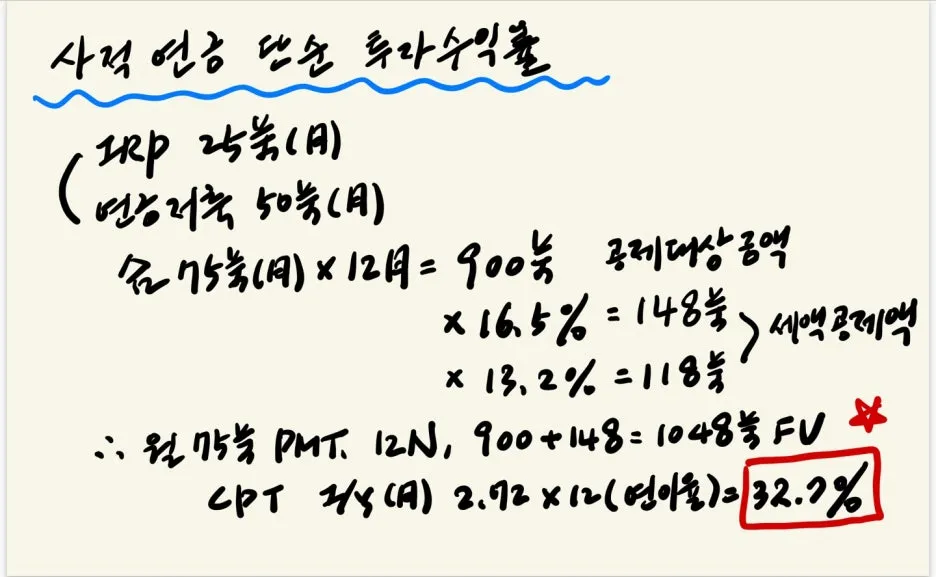 사적 연금 단순 투자수익률
IRP 25만(月)
연금저축 50만(月)
合 75만(月) × 12月 = 900만 공제대상금액
× 16.5% = 148만
× 13.2% = 118만
세액공제액
∴ 월 75만 PMT. 12N, 900+148=1048만 FV
CPT I/Y (月) 2.72 × 12 (연이율) = 32.7%